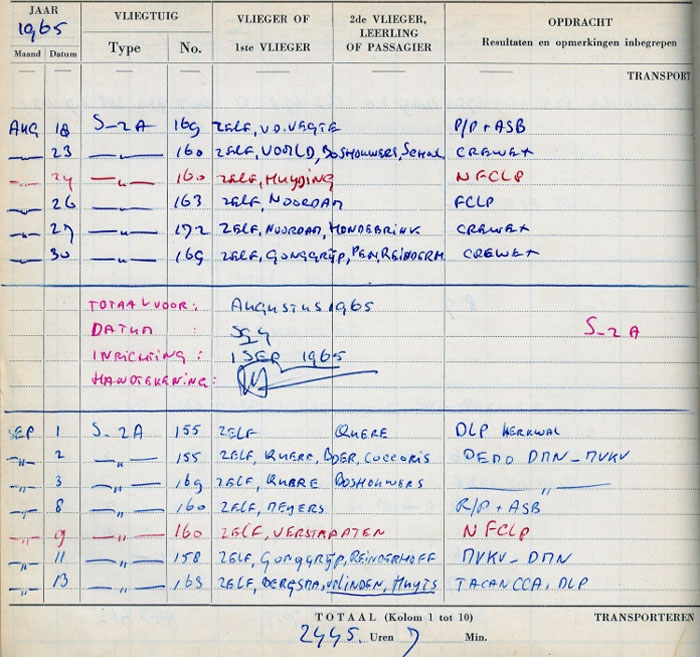 JAAR VLIEGTUIG VLIEGER OF 2de VLIEGER, OPDRACHT
1965 LEERLING
Maand Datum Type No. 1ste VLIEGER OF PASSAGIER Resultaten en opmerkingen inbegrepen
TRANSPORT
AUG 18 S-2A 169 ZELF, V.D. VEGTE P/P + ASB
—„— 23 —„— 160 ZELF, BOSHOUWERS, CREWEX
—„— 24 —„— 160 ZELF, NFCLP
—„— 26 —„— 163 ZELF, NOORDAM FCLP
—„— 27 —„— 172 ZELF, NOORDAM, HONDEBRINK CREWEX
—„— 30 —„— 169 ZELF, GONGGRYP, PEN, REINDERH CREWEX
TOTAAL VOOR: AUGUSTUS 1965
DATUM : S-2A
INRICHTING : 1 SEP 1965
HANDTEKENING:
SEP 1 S-2A 155 ZELF QUERE DLP HERKWAL
—„— 2 —„— 155 ZELF, QUERE, BOER, COCCORIS DEMO DMN–MVKV
—„— 3 —„— 169 ZELF, QUERE BOSHOUWERS —„—
—„— 8 —„— 160 ZELF, MEYERS R/P + ASB
—„— 9 —„— 160 ZELF, VERSTRAATEN NFCLP
—„— 11 —„— 158 ZELF, GONGGRYP, REINDERHOFF MVKV–DMN
—„— 13 —„— 163 ZELF, BERGSMA, V LINDEN, HUYTS TACANCCA, DLP
TOTAAL (Kolom 1 tot 10) TRANSPORTEREN
2445. Uren 7 Min.